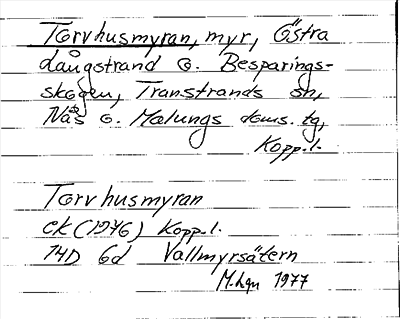 Torvhusmyran, myr, Östra
Långstrand o. Besparings-
skogen, Transtrands sn,
Nås o. Malungs doms. tg,
Kopp.l.
Torvhusmyran
ek (1976) Kopp.l.
14D 6d Vallmyrsätern
M.hqn 1977